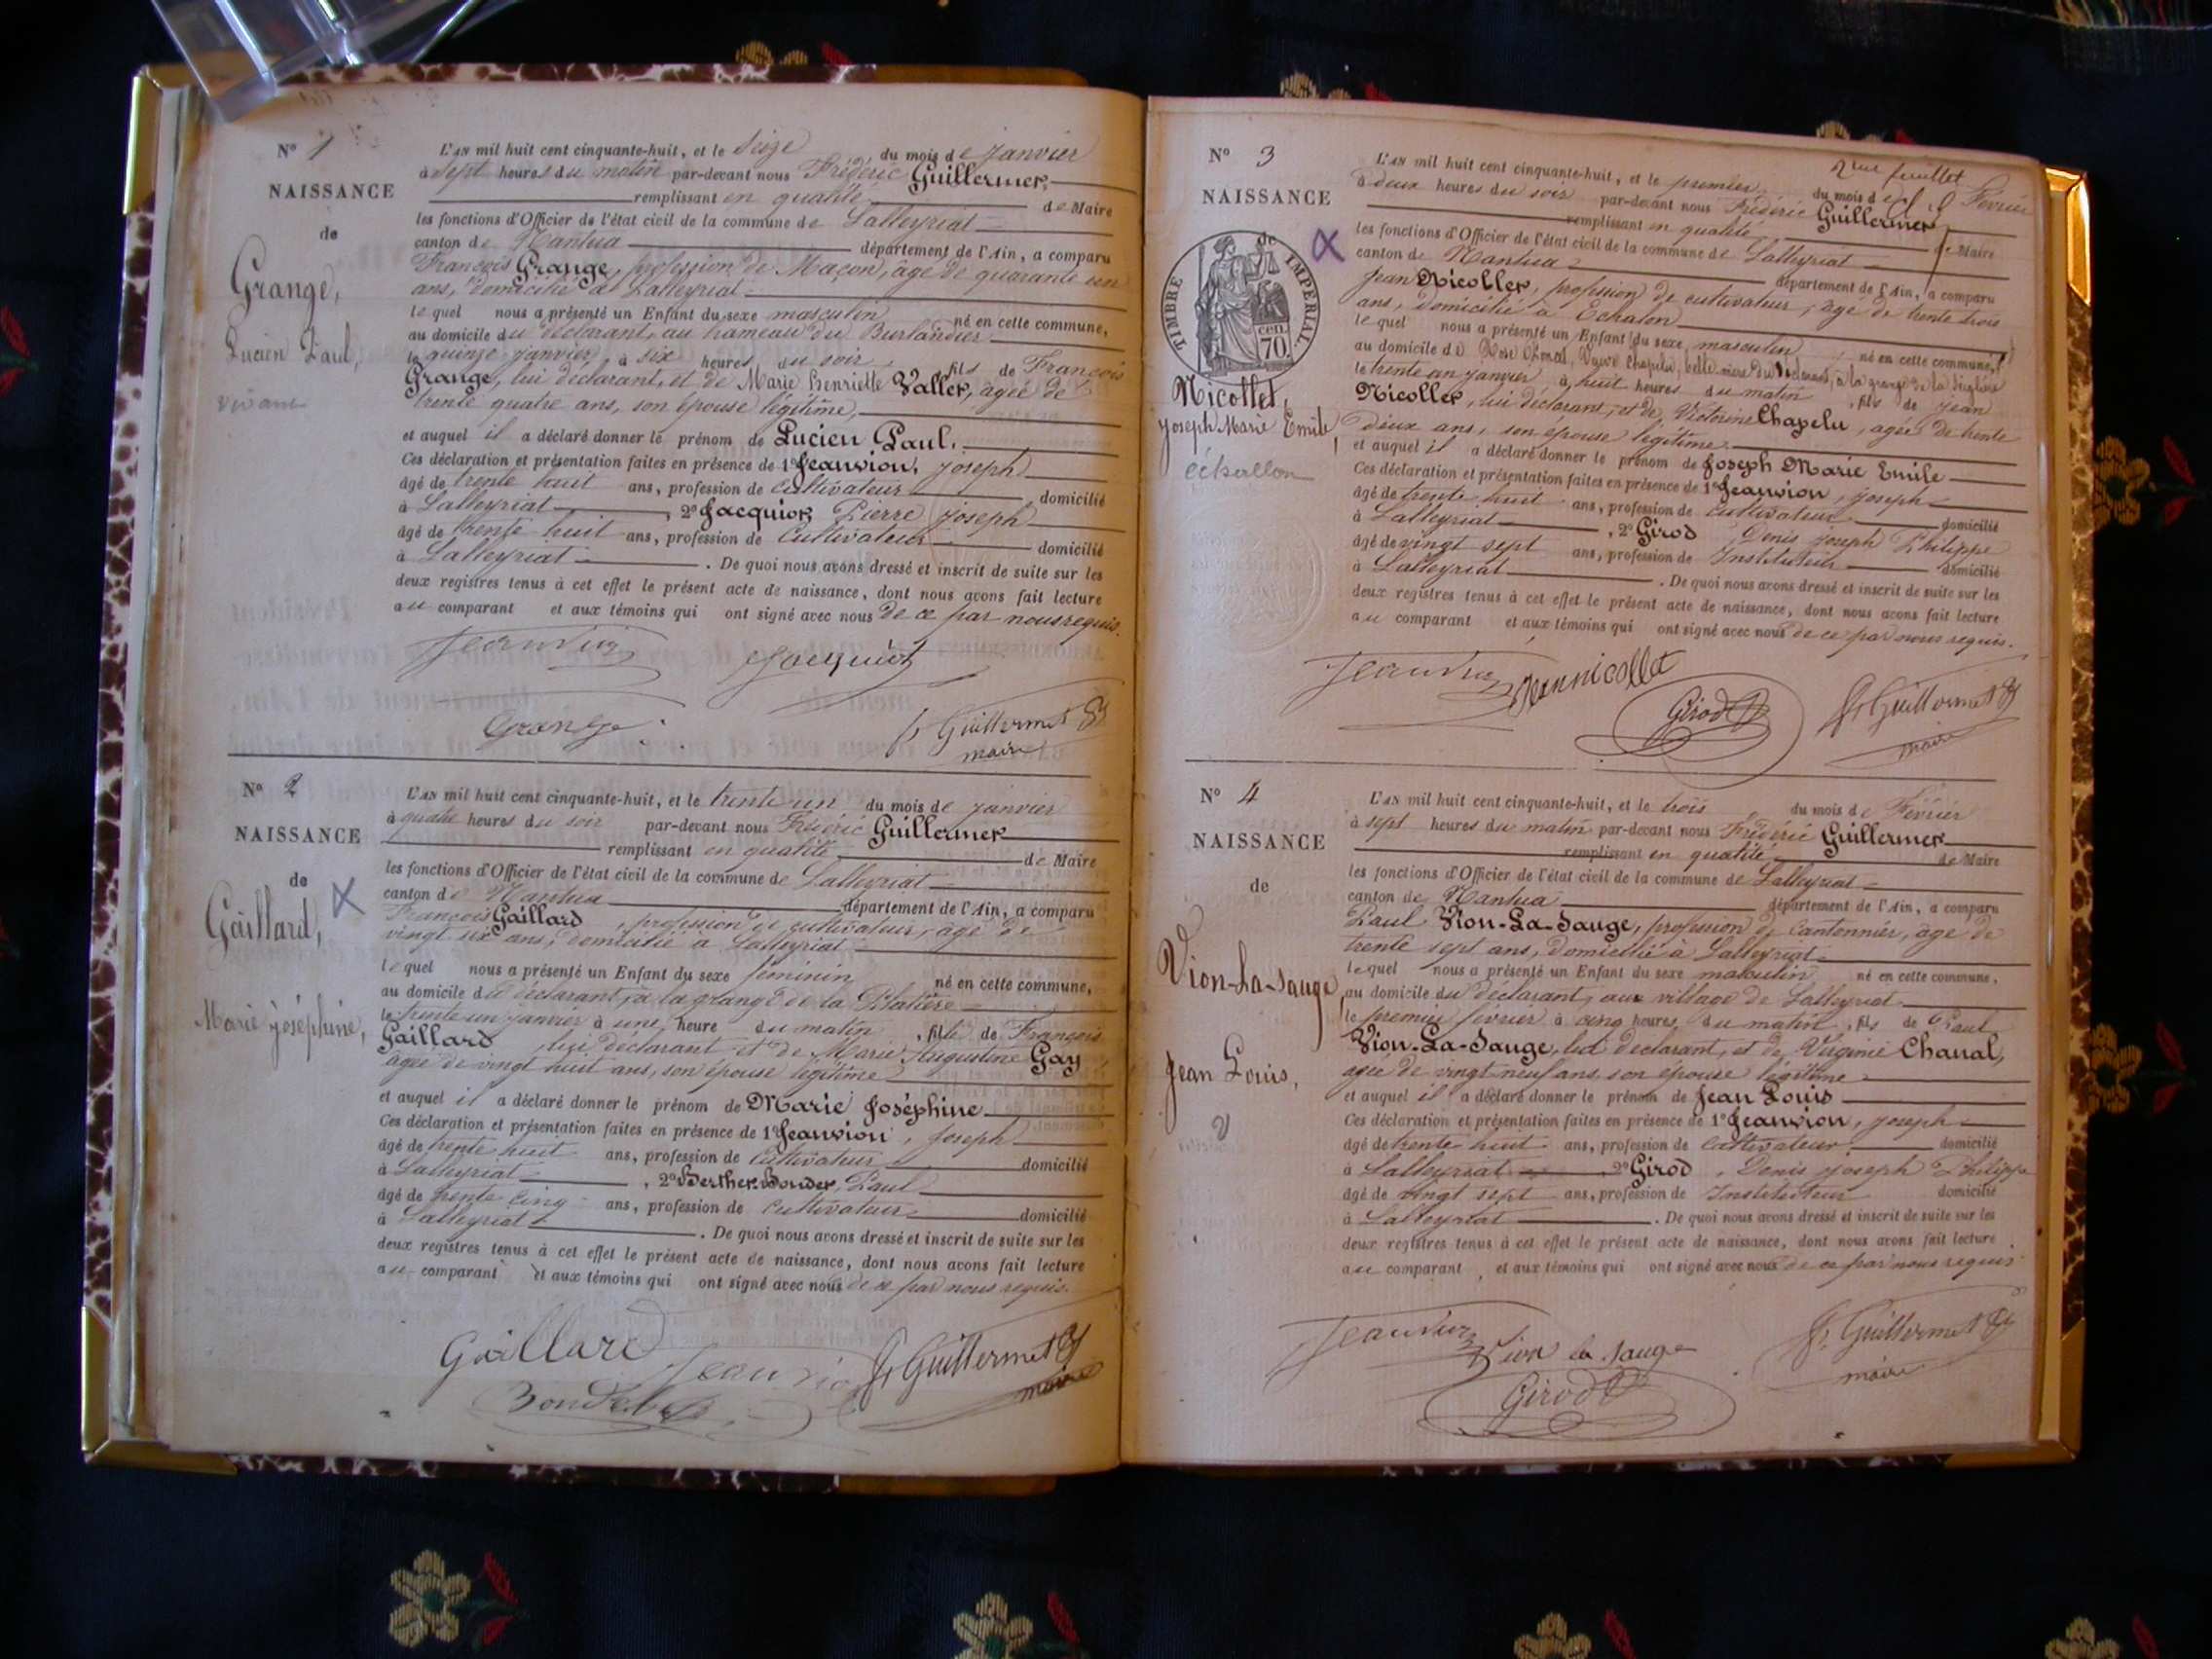 Nº 1
NAISSANCE
de
Grange,
Lucien Paul,
vivant
L'AN mil huit cent cinquante-huit, et le Seize du mois de janvier
à sept heures du matin par-devant nous Frédéric Guillermet,
remplissant en qualité de Maire
les fonctions d'Officier de l'état civil de la commune de Lalleyriat
canton de Nantua département de l'Ain, a comparu
François Grange, profession de Maçon, âgé de quarante un
ans, domicilié à Lalleyriat
lequel nous a présenté un Enfant du sexe masculin né en cette commune,
au domicile du déclarant, au hameau du Burlandier
le quinze janvier, à six heures du soir, fils de François
Grange, lui déclarant, et de Marie Henriette Vallet, âgée de
trente quatre ans, son épouse légitime,
et auquel il a déclaré donner le prénom de Lucien Paul.
Ces déclaration et présentation faites en présence de 1º Jeanvion, Joseph
âgé de trente huit ans, profession de Cultivateur domicilié
à Lalleyriat, 2º Jacquiot Pierre Joseph
âgé de trente huit ans, profession de Cultivateur domicilié
à Lalleyriat. De quoi nous avons dressé et inscrit de suite sur les
deux registres tenus à cet effet le présent acte de naissance, dont nous avons fait lecture
au comparant et aux témoins qui ont signé avec nous de ce par nous requis.
Jeanvion Jacquiot
Grange fs Guillermet
maire
Nº 2
NAISSANCE
de
Gaillard,
Marie Joséphine,
L'AN mil huit cent cinquante-huit, et le trente un du mois de janvier
à quatre heures du soir par-devant nous Frédéric Guillermet
remplissant en qualité de Maire
les fonctions d'Officier de l'état civil de la commune de Lalleyriat
canton de Nantua département de l'Ain, a comparu
François Gaillard, profession de cultivateur, âgé de
vingt six ans, domicilié à Lalleyriat
lequel nous a présenté un Enfant du sexe féminin né en cette commune,
au domicile du déclarant, à la grange de la Platière
le trente un janvier à une heure du matin, fille de François
Gaillard, lui déclarant et de Marie Augustine Gay
âgée de vingt huit ans, son épouse légitime
et auquel il a déclaré donner le prénom de Marie Joséphine
Ces déclaration et présentation faites en présence de 1º Jeanvion, Joseph
âgé de trente huit ans, profession de Cultivateur domicilié
à Lalleyriat, 2º Berthet-Bondet, Paul
âgé de trente cinq ans, profession de cultivateur domicilié
à Lalleyriat. De quoi nous avons dressé et inscrit de suite sur les
deux registres tenus à cet effet le présent acte de naissance, dont nous avons fait lecture
au comparant et aux témoins qui ont signé avec nous de ce par nous requis.
Gaillard Jeanvion fs Guillermet
Bondet maire
2me feuillet
Nº 3
NAISSANCE
de
TIMBRE IMPERIAL.
70 cen.
Nicollet,
Joseph Marie Emile,
échallon
L'AN mil huit cent cinquante-huit, et le premier du mois de Février
à deux heures du soir par-devant nous Frédéric Guillermet
remplissant en qualité de Maire
les fonctions d'Officier de l'état civil de la commune de Lalleyriat
canton de Nantua département de l'Ain, a comparu
Jean Nicollet, profession de cultivateur, âgé de trente trois
ans, domicilié à Echalon
lequel nous a présenté un Enfant du sexe masculin, né en cette commune,
au domicile de Rose Veuve Chapelu, belle mère du déclarant, à la grange de la
le trente un janvier, à huit heures du matin, fils de Jean
Nicollet, lui déclarant, et de Victorine Chapelu, âgée de trente
deux ans, son épouse légitime
et auquel il a déclaré donner le prénom de Joseph Marie Emile
Ces déclaration et présentation faites en présence de 1º Jeanvion, Joseph
âgé de trente huit ans, profession de Cultivateur domicilié
à Lalleyriat, 2º Girod, Denis Joseph Philippe
âgé de vingt sept ans, profession de Instituteur domicilié
à Lalleyriat. De quoi nous avons dressé et inscrit de suite sur les
deux registres tenus à cet effet le présent acte de naissance, dont nous avons fait lecture
au comparant et aux témoins qui ont signé avec nous de ce par nous requis.
Jeanvion Jean nicollet Girod fs Guillermet
maire
Nº 4
NAISSANCE
de
Vion-La-Sauge,
Jean Louis,
v
L'AN mil huit cent cinquante-huit, et le trois du mois de Février
à sept heures du matin par-devant nous Frédéric Guillermet
remplissant en qualité de Maire
les fonctions d'Officier de l'état civil de la commune de Lalleyriat
canton de Nantua département de l'Ain, a comparu
Paul Vion-La-Sauge, profession de Cantonnier, âgé de
trente sept ans, domicilié à Lalleyriat
lequel nous a présenté un Enfant du sexe masculin né en cette commune,
au domicile du déclarant, au village de Lalleyriat
le premier février à cinq heures du matin, fils de Paul
Vion-La-Sauge, lui déclarant, et de Virginie Chanal,
âgée de vingt-neuf ans, son épouse légitime
et auquel il a déclaré donner le prénom de Jean Louis
Ces déclaration et présentation faites en présence de 1º Jeanvion, Joseph
âgé de trente huit ans, profession de Cultivateur domicilié
à Lalleyriat 2º Girod, Denis Joseph Philippe
âgé de vingt sept ans, profession de Instituteur domicilié
à Lalleyriat. De quoi nous avons dressé et inscrit de suite sur les
deux registres tenus à cet effet le présent acte de naissance, dont nous avons fait lecture
au comparant, et aux témoins qui ont signé avec nous de ce par nous requis
Jeanvion Vion la sauge fs Guillermet
Girod maire